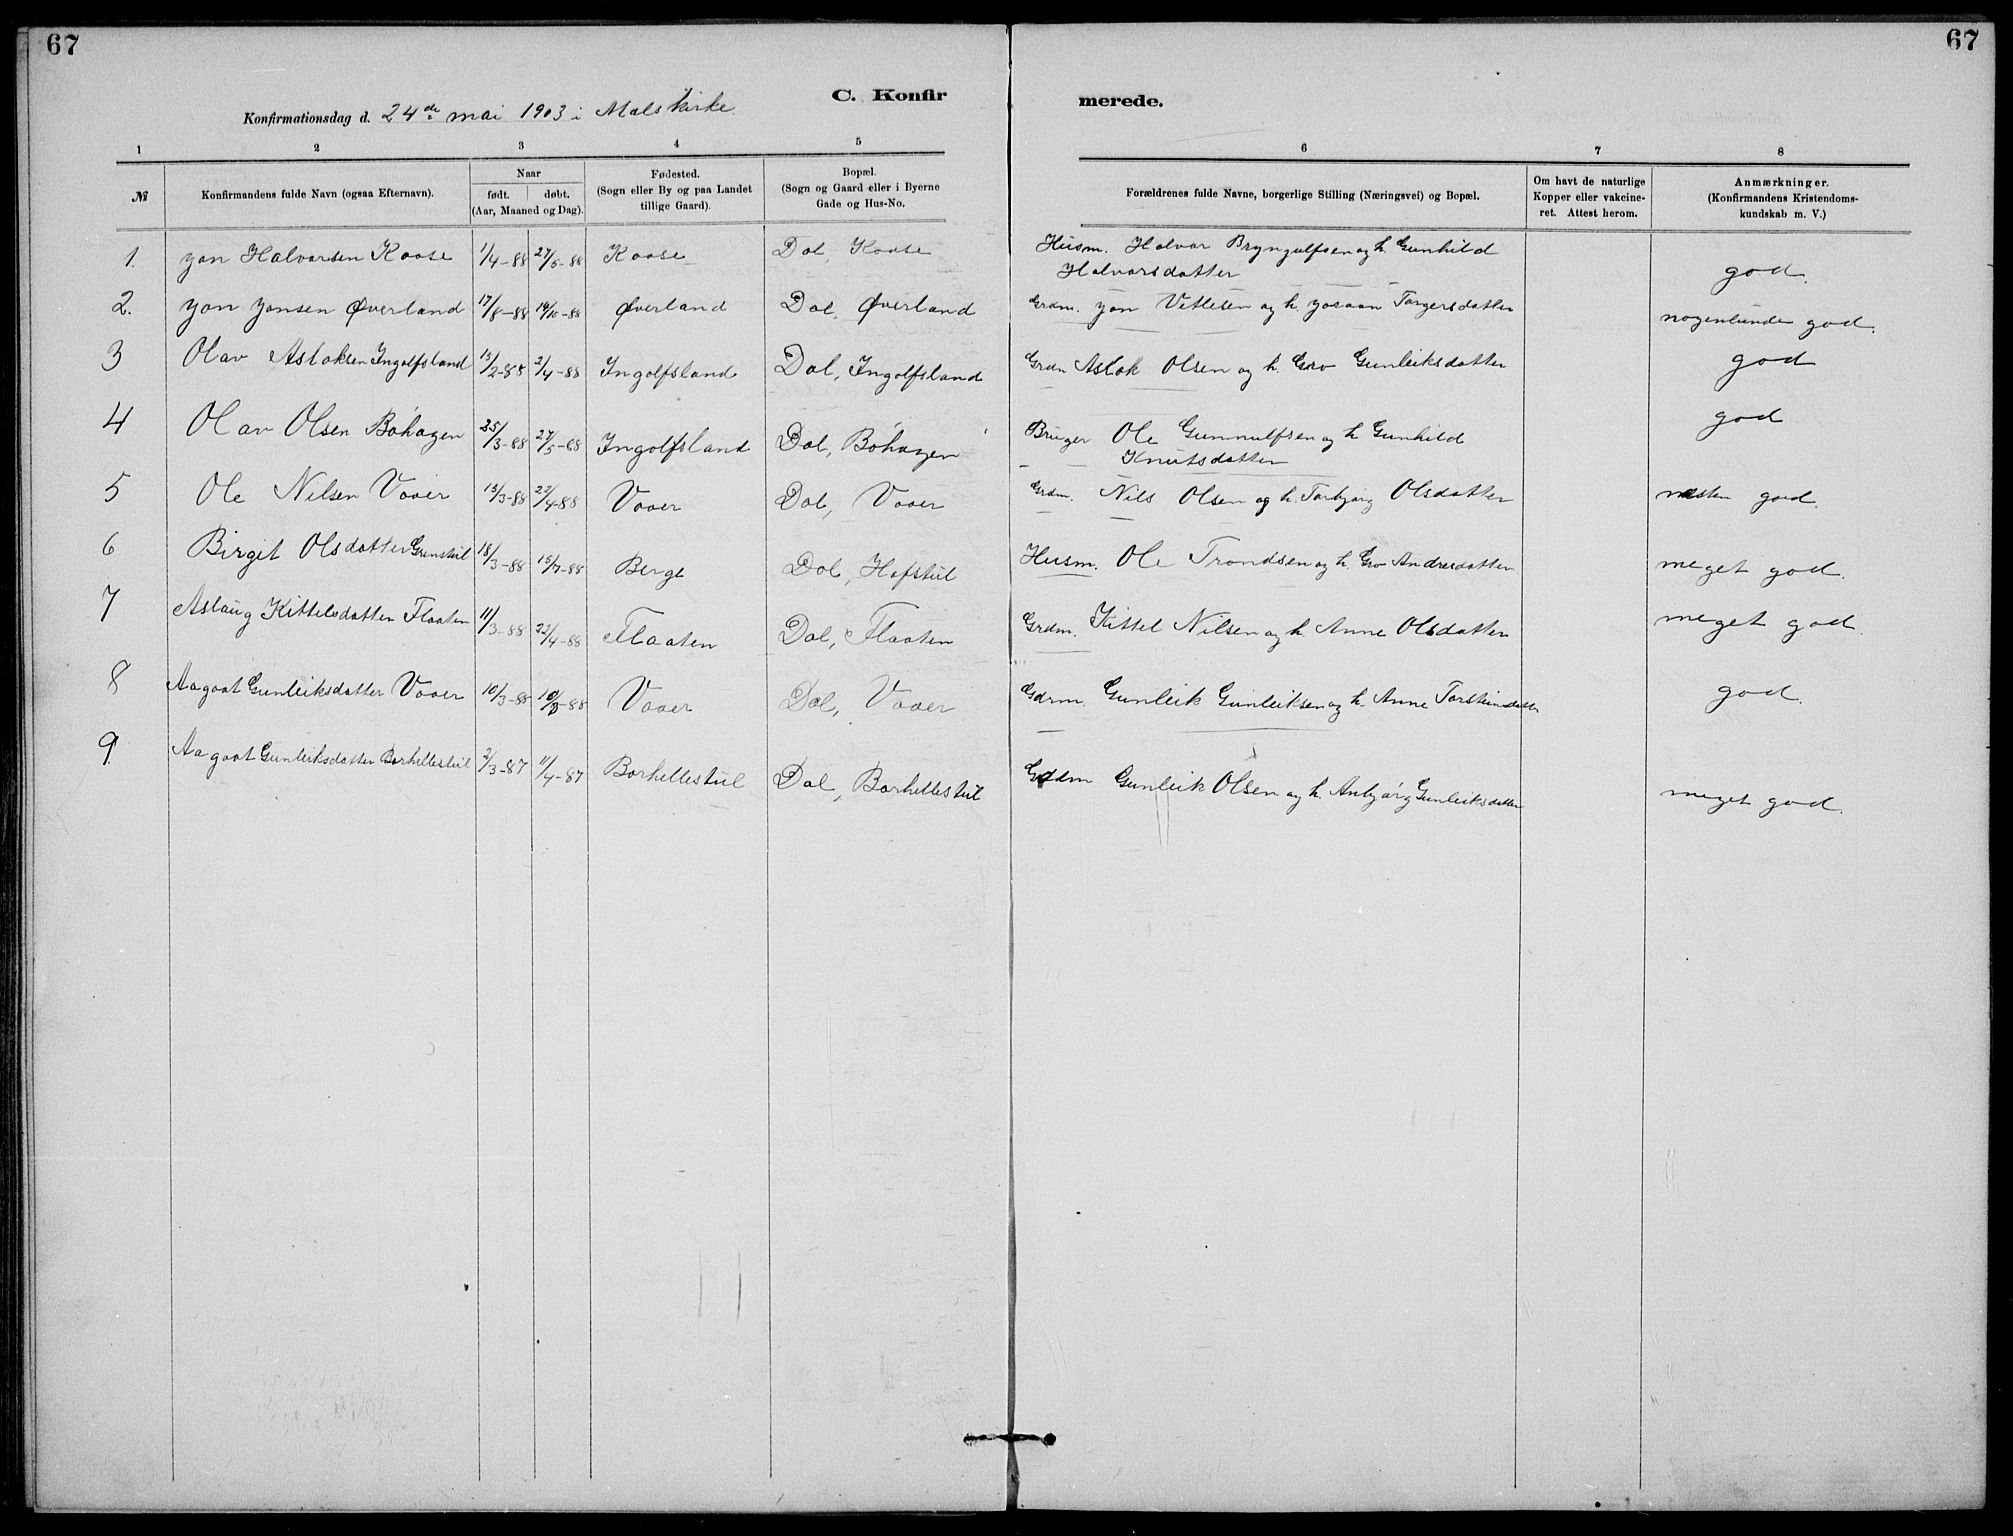 67
67
C. Konfir
merede.
Konfirmationsdag d. 24de mai 1903 i Mæls kirke.
1 2 3 4 5 6 7 8
№
Konfirmandens fulde Navn (ogsaa Efternavn).
Naar
født. døbt.
(Aar, Maaned og Dag).
Fødested.
(Sogn eller By og paa Landet
tillige Gaard).
Bopæl.
(Sogn og Gaard eller i Byerne
Gade og Hus-No.
Forældrenes fulde Navne, borgerlige Stilling (Næringsvei) og Bopæl.
Om havt de naturlige
Kopper eller vakcine-
ret. Attest herom.
Anmærkninger.
(Konfirmandens Kristendoms-
kundskab m. V.)
1. Jon Halvorsen Kaase 1/4-88 27/5-88 Kaase Dal, Kaase Husm. Halvor Bryngulfsen og h. Gunhild
Halvorsdatter god.
2. Jon Jonsen Øverland 17/8-88 14/10-88 Øverland Dal, Øverland Grdm. Jon Vetlesen og h. Joraan Torgersdatter nogenlunde god.
3 Olav Aslaksen Ingolfsland 13/2-88 2/4-88 Ingolfsland Dal, Ingolfsland Grdm Aslak Olsen og h. Gro Gunleiksdatter god
4 Olav Olsen Bøhagen 25/3-88 27/5-88 Ingolfsland Dal, Bøhagen Bruger Ole Gunnulfsen og h Gunhild
Knutsdatter god
5 Ole Nilsen Vaaer 13/3-88 22/4-88 Vaaer Dal, Vaaer Grdm. Nils Olsen og h. Torbjørg Olsdatter næsten god.
6 Birgit Olsdatter 18/3-88 15/7-88 Berge Dal, Hafstul Husm. Ole Trondsen og h. Gro Andresdatter meget god.
7 Aslaug Kittelsdatter Flaaten 11/3-88 22/4-88 Flaaten Dal, Flaaten Grdm. Kittel Nilsen og h. Anne Olsdatter meget god.
8 Aagaat Gunleiksdatter Vaaer 10/3-88 Vaaer Dal, Vaaer Gdrm. Gunleik Gunleiksen og h. Anne Torsteinsdatter god.
9. Aagaat Gunleiksdatter Borhellestul 2/3-87 11/4-87 Borhellestul Dal, Borhellestul Grdm Gunleik Olsen og h. Anbjørg Gunleiksdatter meget god.